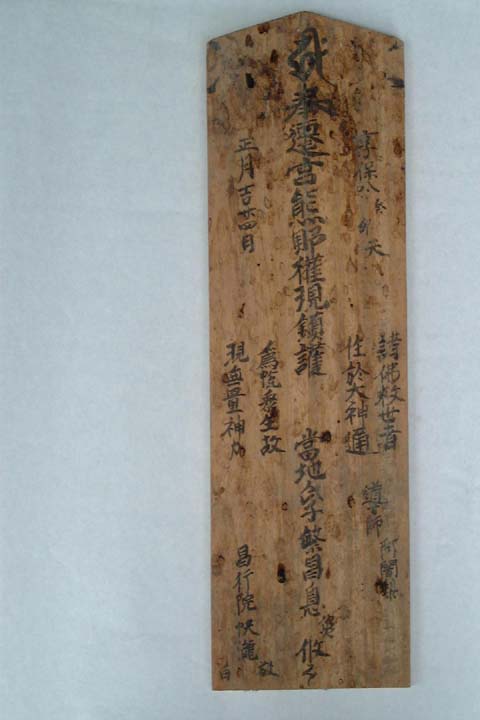 享保八癸卯天
諸佛救世者
住於大神通
導師 阿闍梨
奉遷宮熊野權現鎮護
當地 繁昌息災
爲悦衆生故
現無量神力
正月吉廿四日
昌行院快瀧
敬白